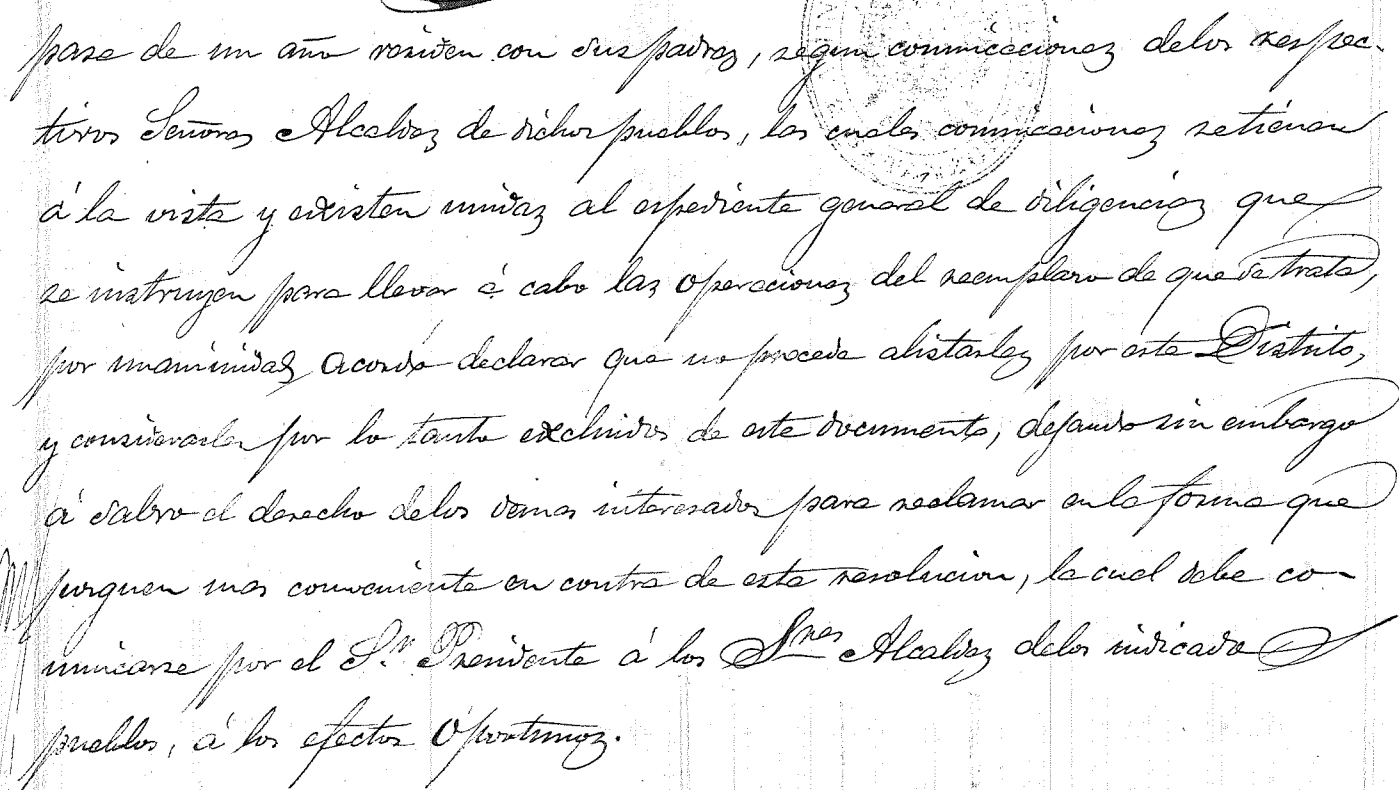 pase de un año residen con sus padres, segun comunicaciones delos respec-
tivos Señores Alcaldes de dichos pueblos, las cuales comunicaciones se tienen
á la vista y existen unidas al espediente general de diligencias que
se instruyen para llevar á cabo las operaciones del reemplazo de que se trata,
por unanimidad acordó declarar que no procede alistarles por este Distrito,
y considerarles por lo tanto excluidos de este documento, dejando sin embargo
á salvo el derecho delos demas interesados para reclamar en la forma que
juzguen mas conveniente en contra de esta resolucion, la cual debe co-
municarse por el S.r Presidente á los Sres Alcaldes delos indicados
pueblos, á los efectos oportunos.